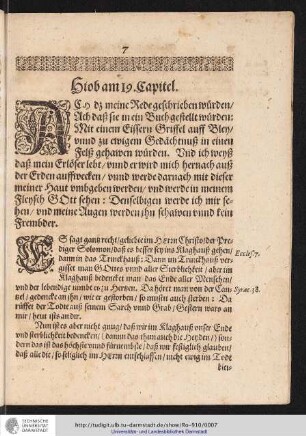 7
Hiob am 19. Capitel.
ACh dz meine Rede geschrieben würden/
Ach daß sie in ein Buch gestellt würden:
Mit einem Eisern Griffel auff Bley/
vnnd zu ewigem Gedächtnuß in einen
Felß gehawen würden. Vnd ich weyß
daß mein Erlöser lebt/ vnnd er wird mich hernach auß
der Erden aufferwecken/ vnnd werde darnach mit dieser
meiner Haut vmbgeben werden/ vnd werde in meinem
Fleysch GOtt sehen: Denselbigen werde ich mir se-
hen/ vnd meine Augen werden jhn schawen vnnd kein
Frembder.
ES sagt gantz recht/ geliebte im HErrn Christo/ der Pre-
diger Solomon/ daß es besser sey ins Klaghauß gehen/
dann in das Trinckhauß: Dann im Trinckhauß ver-
Eccles. 7.
gisset man GOttes vnnd aller Sterbligkeit/ aber im
Klaghauß bedencket man das Ende aller Menschen/
vnd der lebendige nimbt es zu Hertzen. Da hört man von der Glock
Syrac. 38.
gedenck an jhn/ wie er gestorben/ so mustu auch sterben: Da
rüffet der Todte auß seinem Sarch vnnd Grab/ Gestern wars an
mir/ heut ists an dir.
Nun ist es aber nicht gnug/ daß wir im Klaghauß vnser Ende
vnd sterbligkeit bedencken/ (dann das thun auch die Heyden/) son-
dern das ist das höchste vnnd fürnembste/ daß wir festiglich glauben/
daß alle die/ so seliglich im HErrn entschlaffen/ nicht ewig im Tod
blei-
TECHNISCHE
UNIVERSITÄT
DARMSTADT
http://tudigit.ulb.tu-darmstadt.de/show/Ro-910/0007
Universitäts- und Landesbibliothek Darmstadt